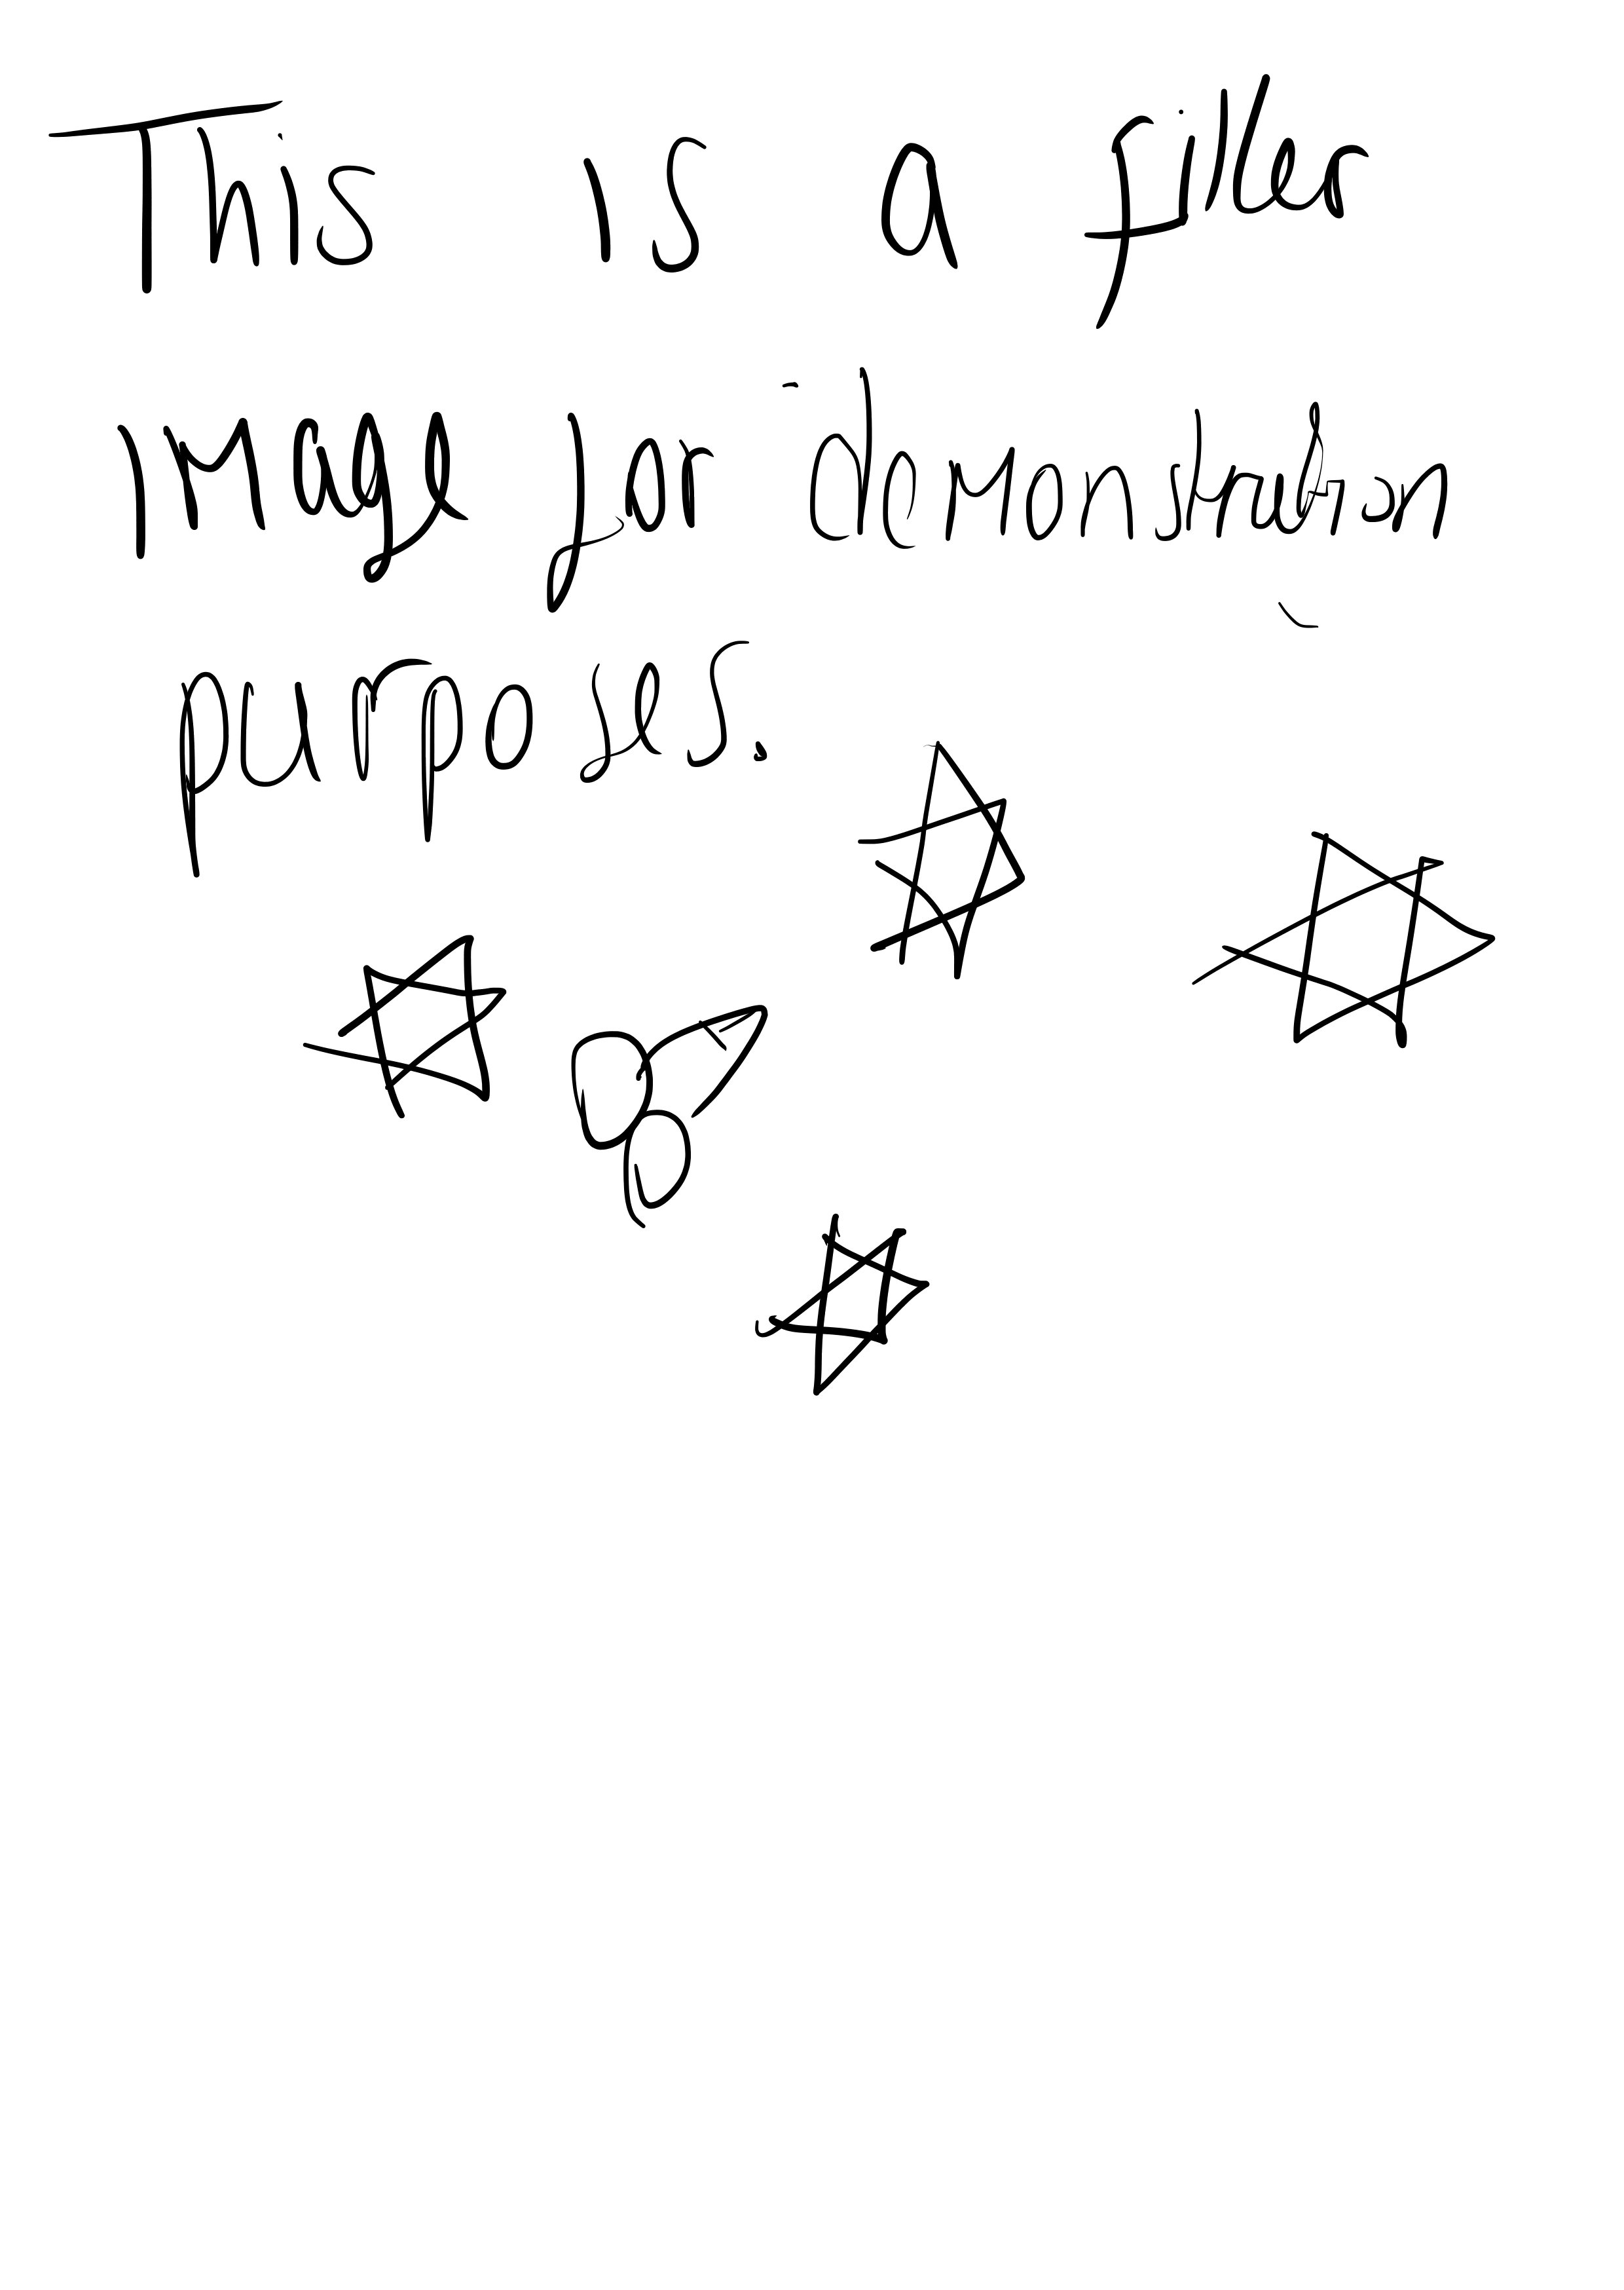 This is a filler
image for demonstration
purposes.